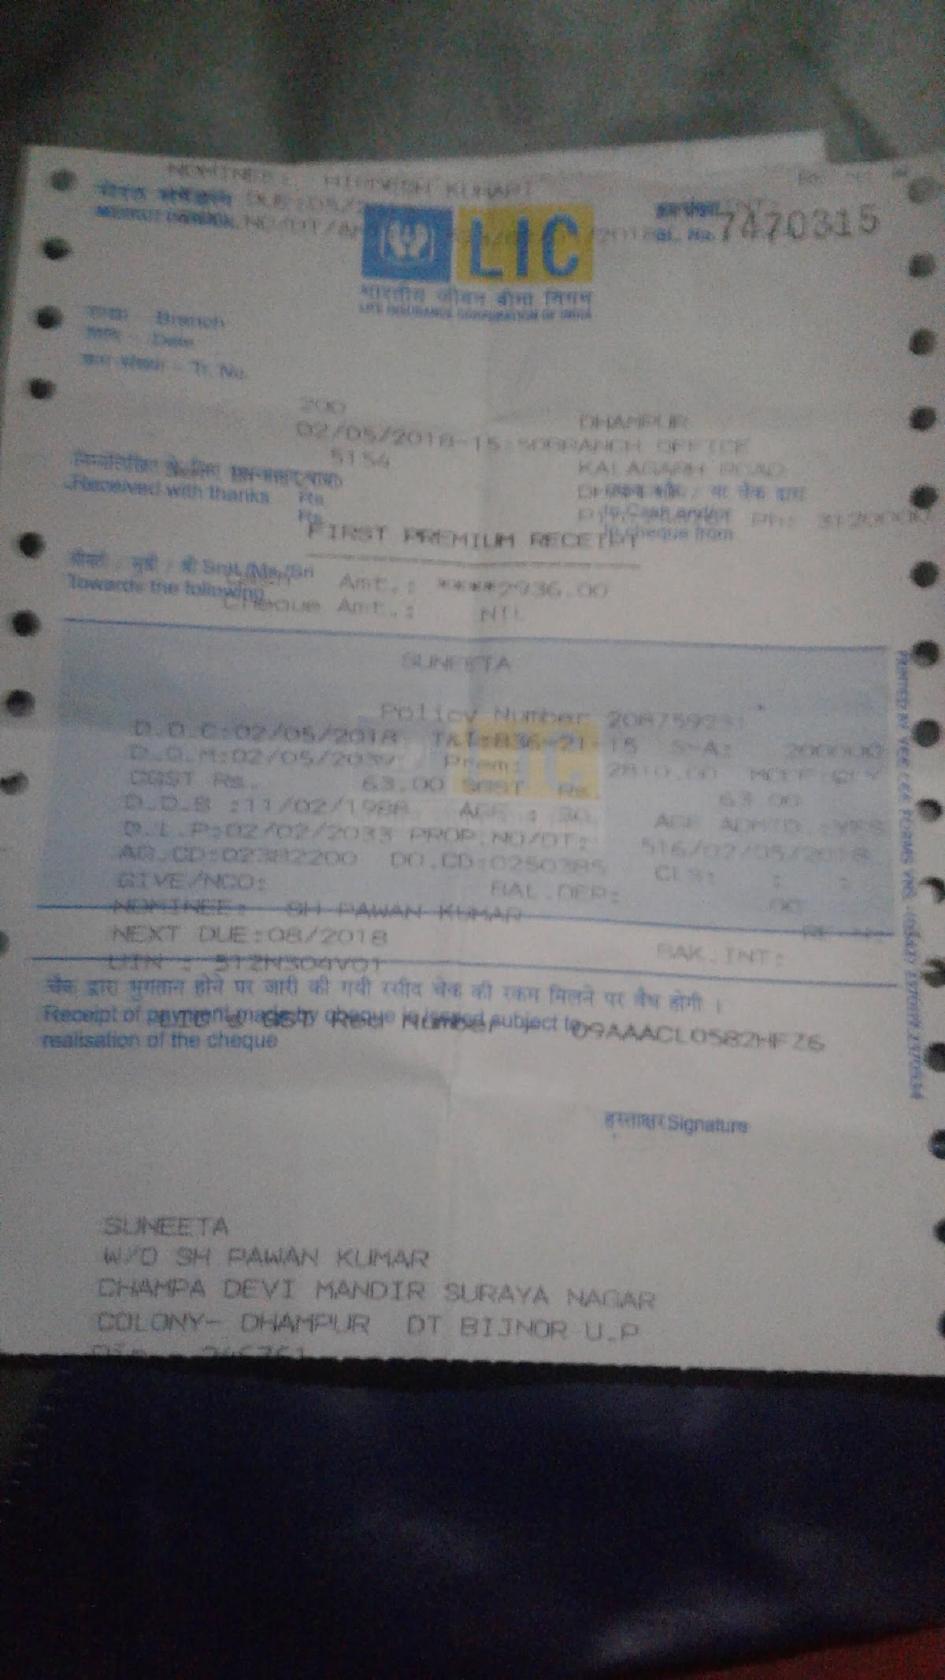 NOMINEE: KUMARI
7470315
LIC
भारतीय जीवन बीमा निगम
LIFE INSURANCE CORPORATION OF INDIA
शाखा Branch
Date
क्रम संख्या - Tr. No.
200 DHAMPUR
02/05/2018-15:50 BRANCH OFFICE
5154 KALAGARH ROAD
Received with thanks Rs. या चेक द्वारा
Rs. in Cash and/or
Ph: 3120000
FIRST PREMIUM RECEIPT by cheque from
श्रीमती / सुश्री / श्री Smt./Ms./Sri Amt.: ****2936.00
Towards the following Cheque Amt.: NIL
SUNEETA
Policy Number
D.O.C:02/05/2018 T&T:836-21-15 S-A: 200000
D.O.M:02/05/2039 Prem: 2810.00 MODE:QLY
CGST Rs. 63.00 SGST Rs. 63.00
D.O.B :11/02/1988 AGE : 30 AGE ADMTD.:YES
D.L.P:02/02/2033 PROP.NO/DT: 516/02/05/2018
AG.CD:02382200 DO.CD:0250385 CLS: : :
GIVE/NCO: BAL.DEP: .00
NOMINEE: SH PAWAN KUMAR
NEXT DUE:08/2018 BAK.INT:
UIN : 512N304V01
चेक द्वारा भुगतान होने पर जारी की गयी रसीद चेक की रकम मिलने पर वैध होगी ।
Receipt of payment made by cheque is issued subject to
realisation of the cheque
LIC's GST Reg Number 09AAACL0582HFZ6
हस्ताक्षर Signature
SUNEETA
W/O SH PAWAN KUMAR
CHAMPA DEVI MANDIR SURAYA NAGAR
COLONY- DHAMPUR DT BIJNOR U.P